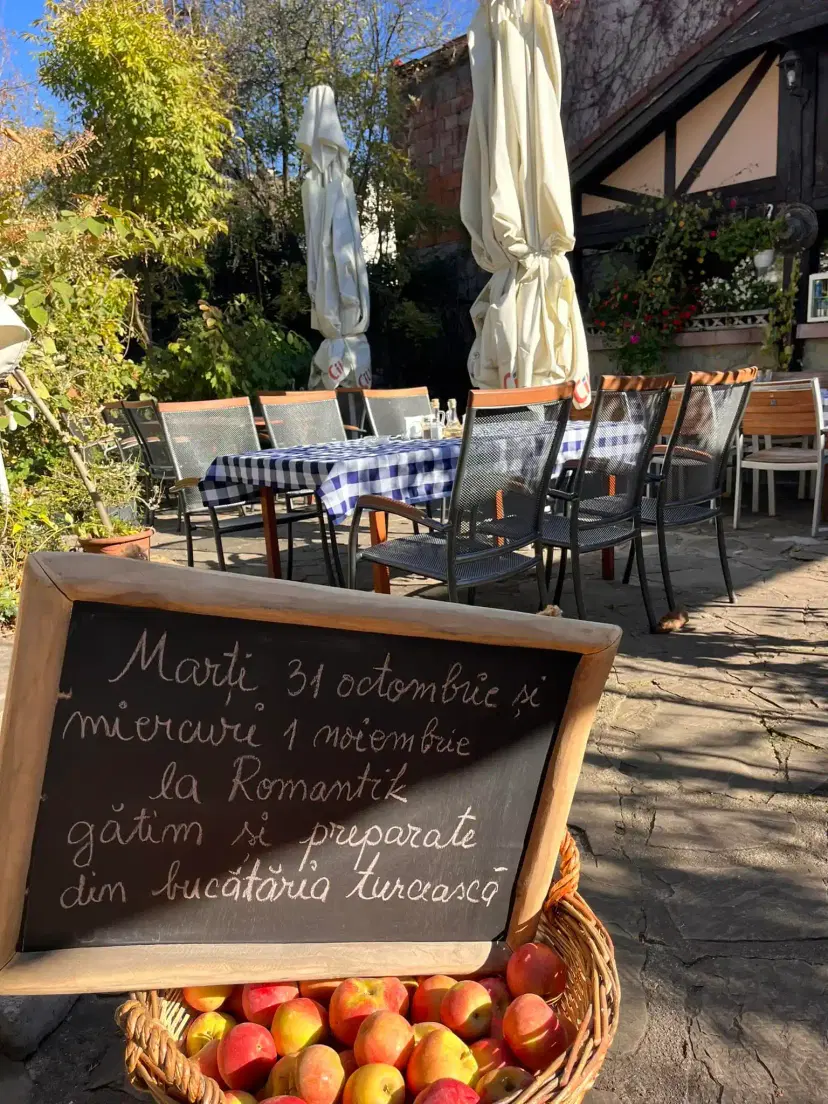 Marți 31 octombrie și
miercuri 1 noiembrie
la Romantik
gătim și preparate
din bucătăria turcească